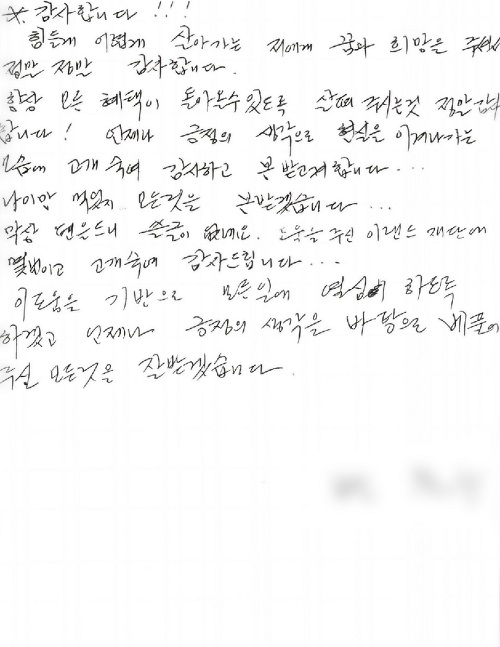 *. 감사합니다 !!!
힘들게 어렵게 살아가는 저에게 꿈과 희망을 주셔서
정말 정말 감사합니다.
항상 모든 혜택이 돌아올수있도록 살펴 주시는것 정말 감사
합니다! 언제나 긍정의 생각으로 현실을 이겨나가는
모습에 고개숙여 감사하고 본받고저합니다...
나이만 먹었지 모든것을 본받겠습니다...
막상 펜을드니 쓸글이 없네요. 도움을 주신 이랜드 재단에
몇번이고 고개숙여 감사드립니다...
이도움을 기반으로 모든일에 열심히 하도록
하겠고 언제나 긍정의 생각을 바탕으로 베풀어
주신 모든것을 잘받겠습니다.